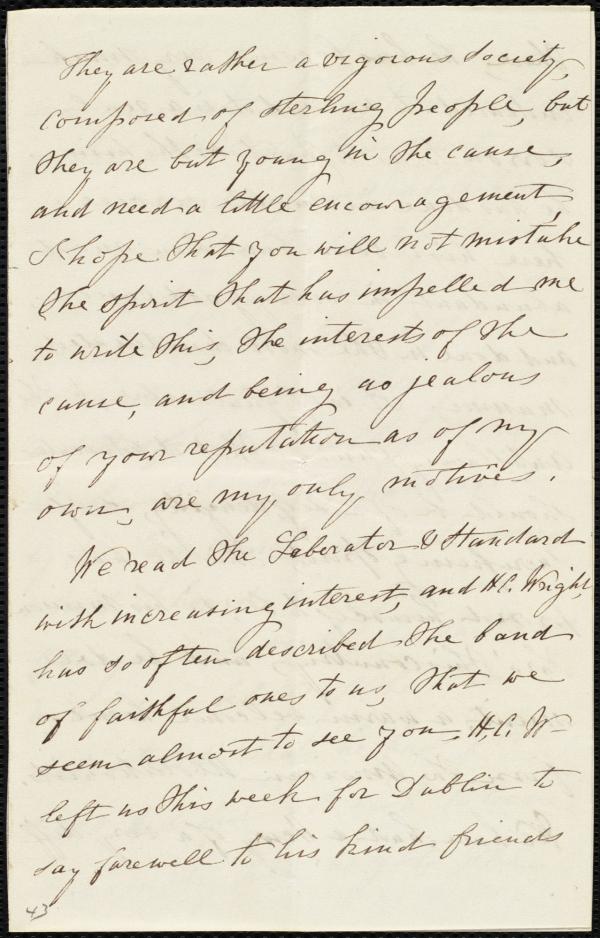 They are rather a vigorous Society,
composed of sterling people, but
they are but young in the cause,
and need a little encouragement,
I hope that you will not mistake
the spirit that has impelled me
to write this, the interests of the
cause, and being as jealous
of your reputation as of my
own, are my only motives.
We read the Leberator & Standard
with increasing interest, and H.C. Wright,
has so often described the band
of faithful ones to us, that we
seem almost to see you, H.C. W-
left us this week for Dublin to
say farewell to his kind friends
43